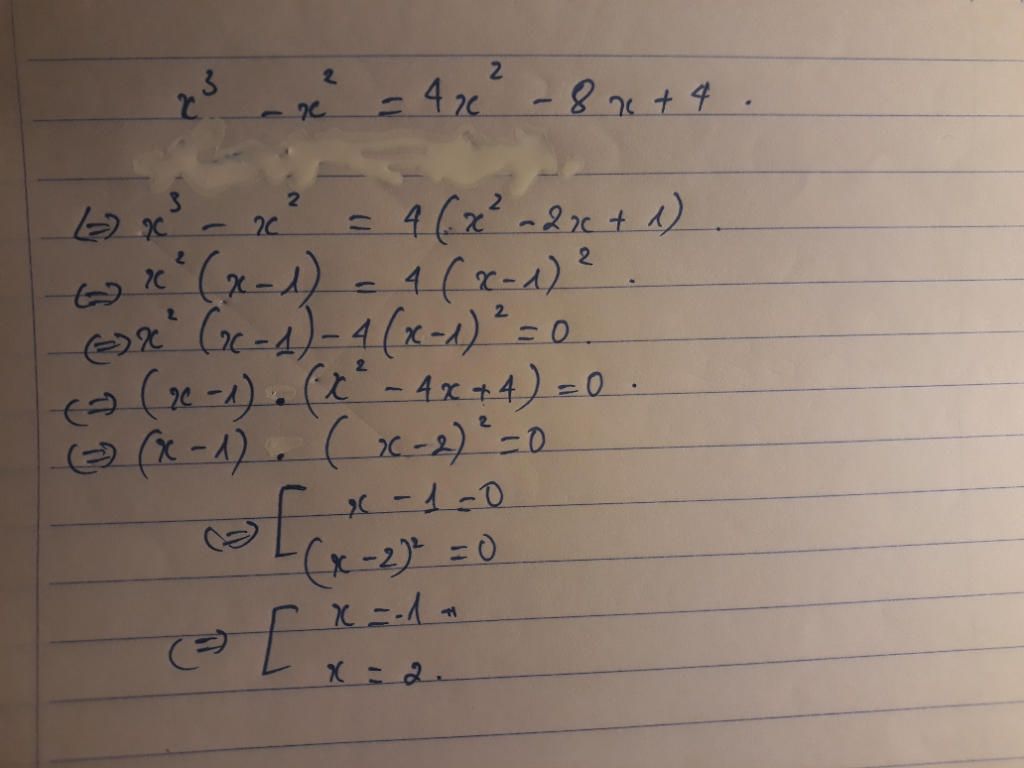 x³ - x² = 4x² - 8x + 4 .
(=) x³ - x² = 4(x² - 2x + 1) .
(=) x² (x-1) = 4 (x-1)² .
(=) x² (x-1) - 4 (x-1)² = 0 .
(=) (x-1) . (x² - 4x + 4) = 0 .
(=) (x-1) . ( x-2)² = 0
(=) [ x - 1 = 0
(x-2)² = 0
(=) [ x = -1
x = 2 .